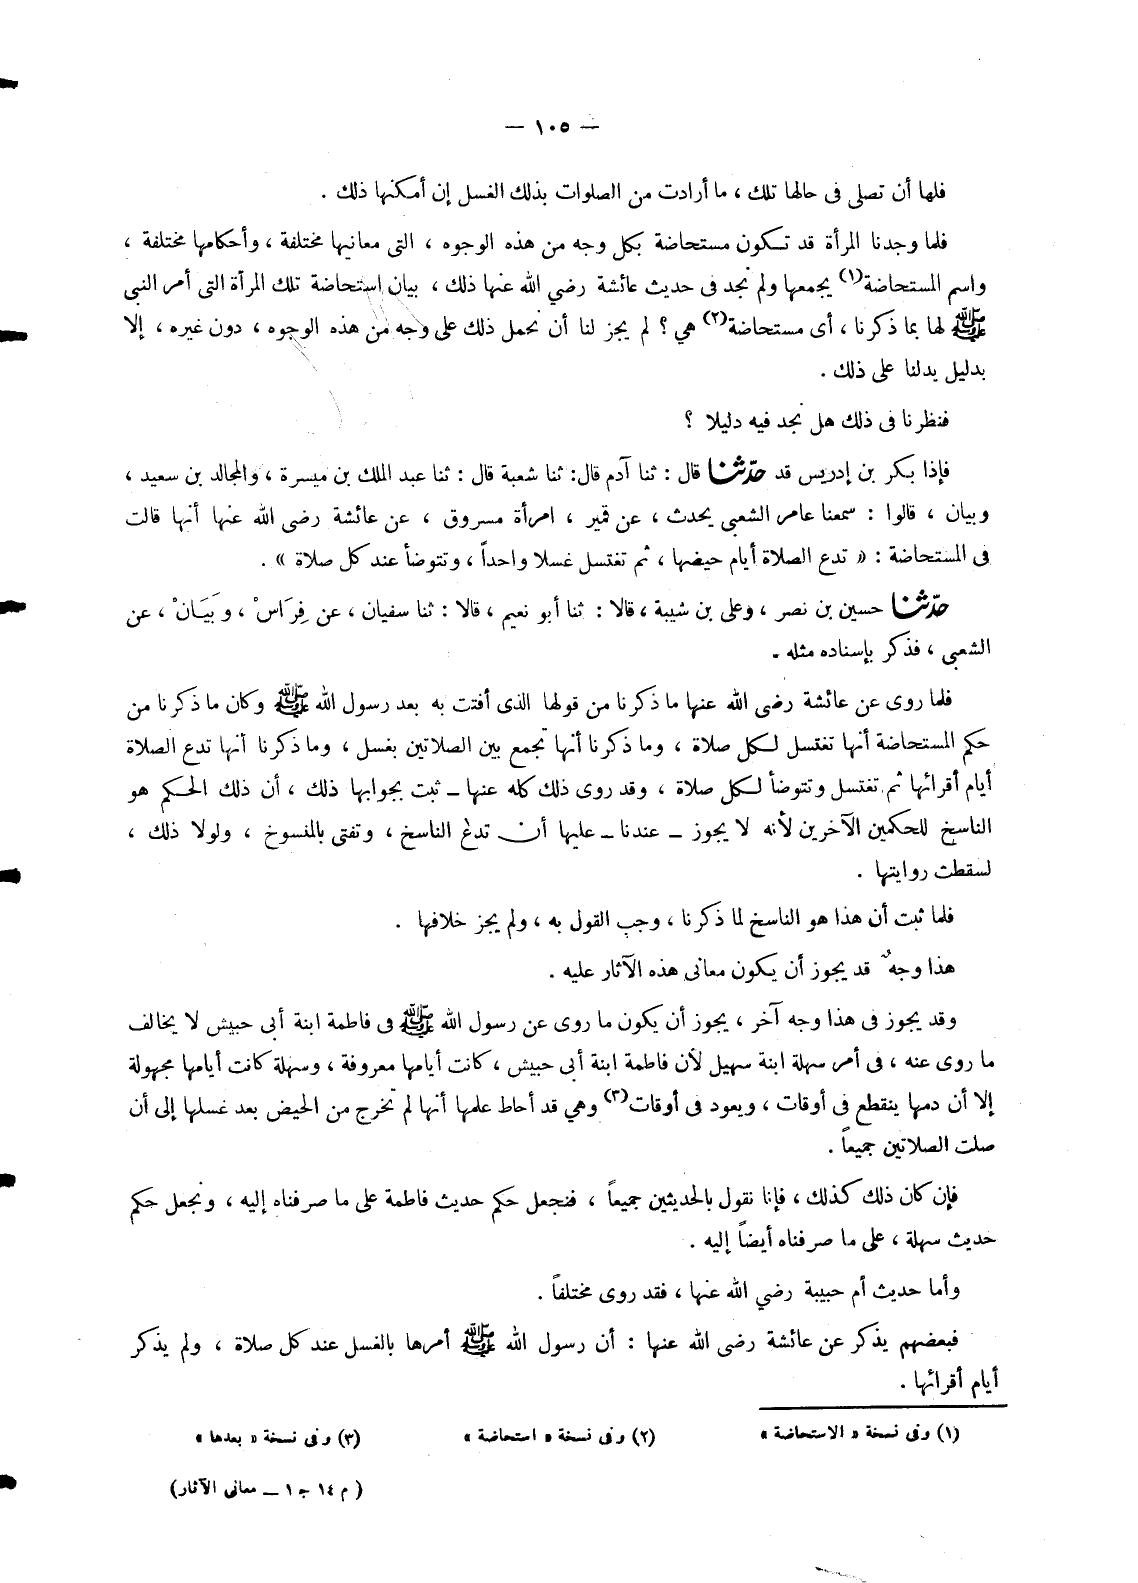 — ١٠٥ —
فلها أن تصلى فى حالها تلك ، ما أرادت من الصلوات بذلك الغسل إن أمكنها ذلك .
فلما وجدنا المرأة قد تكون مستحاضة بكل وجه من هذه الوجوه ، التى معانيها مختلفة ، وأحكامها مختلفة ،
واسم المستحاضة(١) يجمعها ولم نجد فى حديث عائشة رضي الله عنها ذلك ، بيان استحاضة تلك المرأة التى أمر النبى
ﷺ لها بما ذكرنا ، أى مستحاضة(٢) هي ؟ لم يجز لنا أن نحمل ذلك على وجه من هذه الوجوه ، دون غيره ، إلا
بدليل يدلنا على ذلك .
فنظرنا فى ذلك هل نجد فيه دليلا ؟
فإذا بكر بن إدريس قد حدّثنا قال : ثنا آدم قال: ثنا شعبة قال : ثنا عبد الملك بن ميسرة ، والمجالد بن سعيد ،
وبيان ، قالوا : سمعنا عامر الشعبي يحدث ، عن قمير ، امرأة مسروق ، عن عائشة رضى الله عنها أنها قالت
فى المستحاضة : « تدع الصلاة أيام حيضها ، ثم تغتسل غسلا واحداً ، وتتوضأ عند كل صلاة » .
حدّثنا حسين بن نصر ، وعلى بن شيبة ، قالا : ثنا أبو نعيم ، قالا : ثنا سفيان ، عن فِرَاسْ ، وبَيَانْ ، عن
الشعبى ، فذكر بإسناده مثله .
فلما روى عن عائشة رضى الله عنها ما ذكرنا من قولها الذى أفتت به بعد رسول الله ﷺ وكان ما ذكرنا من
حكم المستحاضة أنها تغتسل لكل صلاة ، وما ذكرنا أنها تجمع بين الصلاتين بغسل ، وما ذكرنا أنها تدع الصلاة
أيام أقرائها ثم تغتسل وتتوضأ لكل صلاة ، وقد روى ذلك كله عنها ــ ثبت بجوابها ذلك ، أن ذلك الحكم هو
الناسخ للحكمين الآخرين لأنه لا يجوز ــ عندنا ــ عليها أن تدع الناسخ ، وتفتى بالمنسوخ ، ولولا ذلك ،
لسقطت روايتها .
فلما ثبت أن هذا هو الناسخ لما ذكرنا ، وجب القول به ، ولم يجز خلافها .
هذا وجهٌ قد يجوز أن يكون معانى هذه الآثار عليه .
وقد يجوز فى هذا وجه آخر ، يجوز أن يكون ما روى عن رسول الله ﷺ فى فاطمة ابنة أبى حبيش لا يخالف
ما روى عنه ، فى أمر سهلة ابنة سهيل لأن فاطمة ابنة أبى حبيش ، كانت أيامها معروفة ، وسهلة كانت أيامها مجهولة
إلا أن دمها ينقطع فى أوقات ، ويعود فى أوقات(٣) وهي قد أحاط علمها أنها لم تخرج من الحيض بعد غسلها إلى أن
صلت الصلاتين جميعاً .
فإن كان ذلك كذلك ، فإنا نقول بالحديثين جميعاً ، فنجعل حكم حديث فاطمة على ما صرفناه إليه ، ونجعل حكم
حديث سهلة ، على ما صرفناه أيضاً إليه .
وأما حديث أم حبيبة رضي الله عنها ، فقد روى مختلفاً .
فبعضهم يذكر عن عائشة رضى الله عنها : أن رسول الله ﷺ أمرها بالغسل عند كل صلاة ، ولم يذكر
أيام أقرائها .
(١) وفى نسخة « الاستحاضة » (٢) وفى نسخة « استحاضة » (٣) وفى نسخة « بعدها »
( م ١٤ ج ١ ــ معانى الآثار)